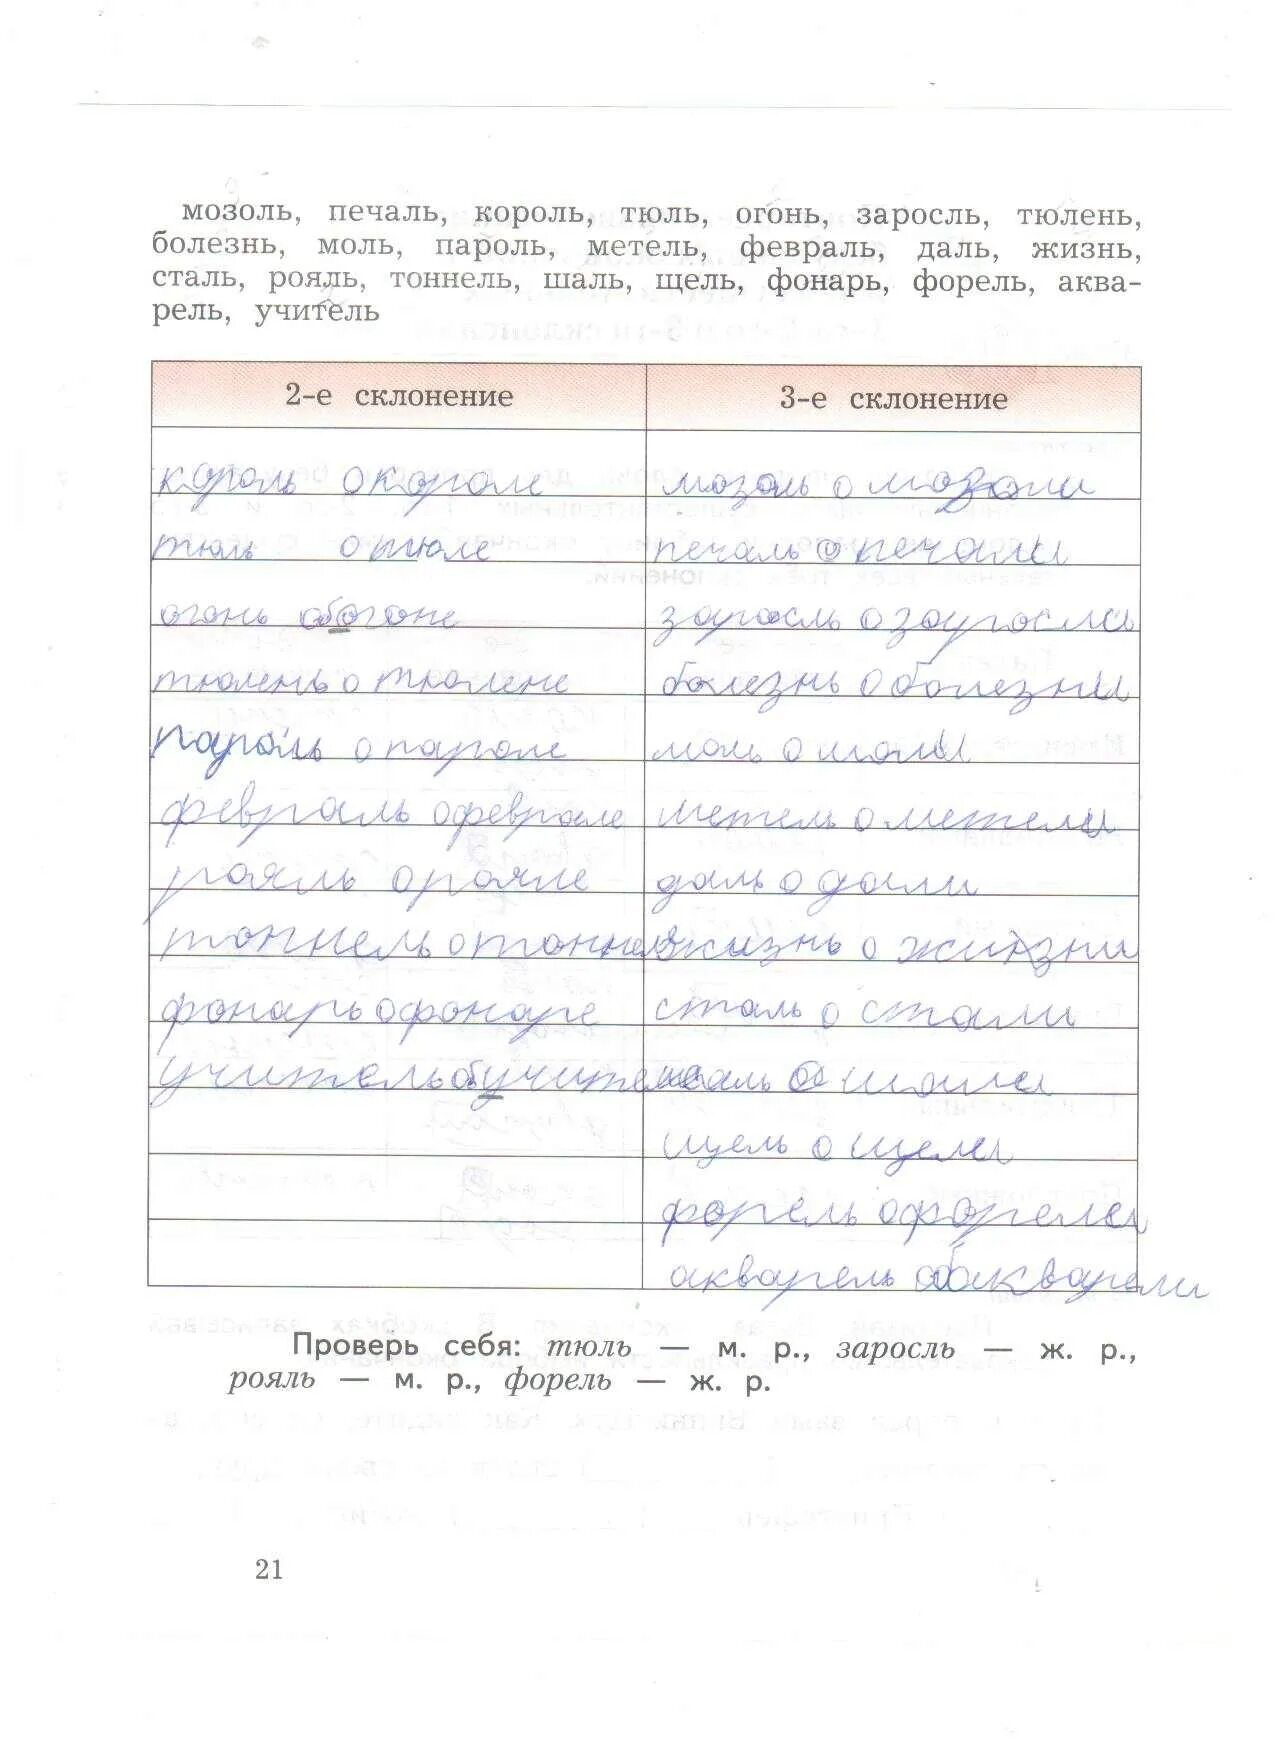 мозоль, печаль, король, тюль, огонь, заросль, тюлень,
болезнь, моль, пароль, метель, февраль, даль, жизнь,
сталь, рояль, тоннель, шаль, щель, фонарь, форель, аква-
рель, учитель
2-е склонение 3-е склонение
король о короле мозоль о мозоли
тюль о тюле печаль о печали
огонь об огоне заросль о заросли
тюлень о тюлене болезнь о болезни
пароль о пароле моль о моли
февраль о феврале метель о метели
рояль о рояле даль о дали
тоннель о тоннеле жизнь о жизни
фонарь о фонаре сталь о стали
учитель об учителе шаль о шали
щель о щели
форель о форели
акварель об акварели
Проверь себя: тюль — м. р., заросль — ж. р.,
рояль — м. р., форель — ж. р.
21